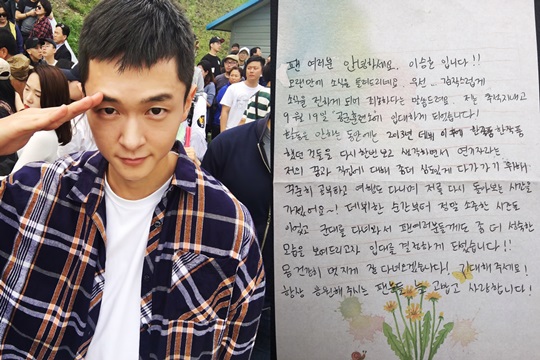 팬 여러분 안녕하세요.. 이승호 입니다!!
오랜만에 소식을 들려드리네요. 우선.. 갑작스럽게
소식을 전하게 되어 죄송하다는 말씀드려요.. 저는
9월 19일 입대하게 됐습니다!
활동을 안하는 동안에는 2013년 데뷔 이후에 한
했던 것들을 다시한번 보고 생각하면서 연기자라는
저의 꿈과 직업에 대해 좀더 다가가기 위해
꾸준히 공부하고 여행도 다니며 저를 다시 돌아보는 시간을
가졌어요~! 데뷔한 순간부터 정말 소중한 시간도
군대를 다녀와서 팬여러분들께도 좀 더 성숙한
모습을 보여드리고자 입대를 결정하게 되었습니다!!
몸 건강히 멋지게 잘 다녀오겠습니다! 기대해 주세요!
항상 응원해 주시는 팬분들 늘 고맙고 사랑합니다!